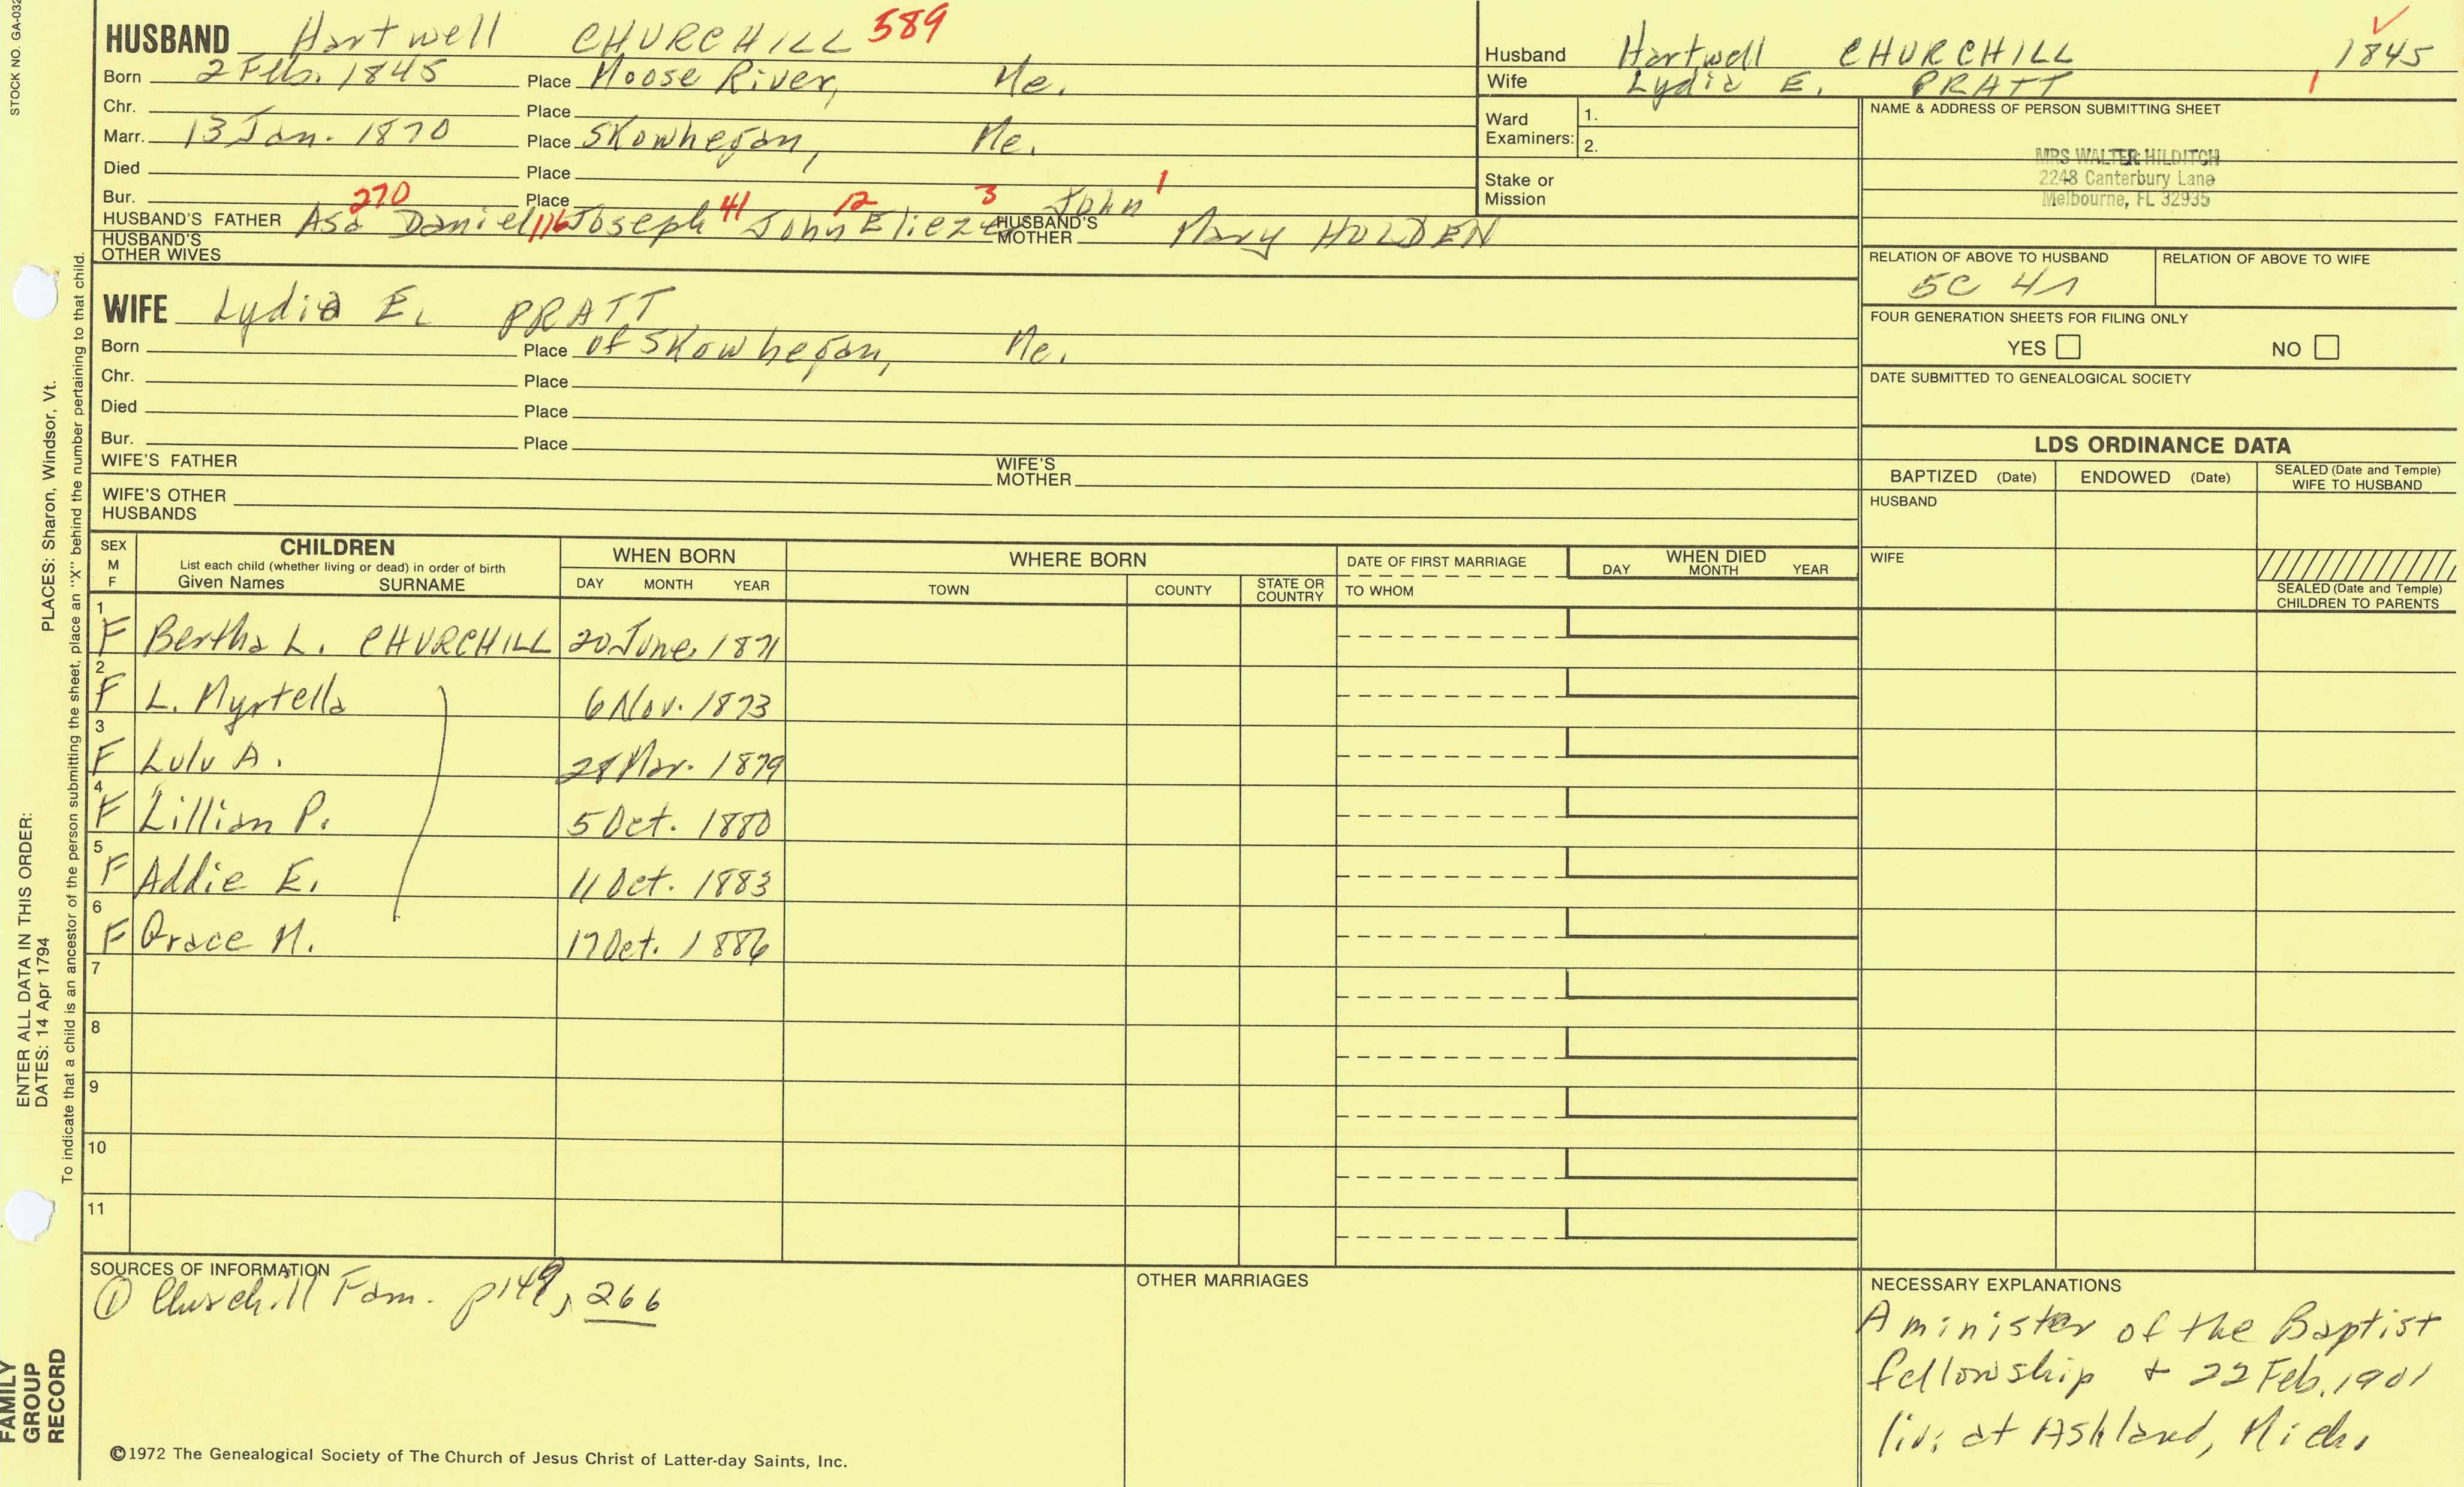 STOCK NO. GA-032
HUSBAND Hartwell CHURCHILL 589
Born 2 Feb. 1845 Place Moose River, Me.
Chr. Place
Marr. 13 Jan. 1870 Place Skowhegan, Me.
Died Place
Bur. Place
HUSBAND'S FATHER Asa 270 Daniel 116 Joseph 41 John 12 Eliezer 3 John 1 HUSBAND'S MOTHER Mary HOLDEN
HUSBAND'S OTHER WIVES
WIFE Lydia E. PRATT
Born Place of Skowhegan, Me.
Chr. Place
Died Place
Bur. Place
WIFE'S FATHER WIFE'S MOTHER
WIFE'S OTHER HUSBANDS
Husband Hartwell CHURCHILL 1845
Wife Lydia E. PRATT 1
Ward Examiners: 1.
2.
Stake or Mission
NAME & ADDRESS OF PERSON SUBMITTING SHEET
MRS WALTER HILDITCH
2248 Canterbury Lane
Melbourne, FL 32935
RELATION OF ABOVE TO HUSBAND RELATION OF ABOVE TO WIFE
5C 4r
FOUR GENERATION SHEETS FOR FILING ONLY
YES NO
DATE SUBMITTED TO GENEALOGICAL SOCIETY
LDS ORDINANCE DATA
BAPTIZED (Date) ENDOWED (Date) SEALED (Date and Temple) WIFE TO HUSBAND
HUSBAND
WIFE
SEALED (Date and Temple) CHILDREN TO PARENTS
SEX M F CHILDREN List each child (whether living or dead) in order of birth Given Names SURNAME
WHEN BORN DAY MONTH YEAR
WHERE BORN TOWN COUNTY STATE OR COUNTRY
DATE OF FIRST MARRIAGE TO WHOM
WHEN DIED DAY MONTH YEAR
1 F Bertha L. CHURCHILL 20 June 1871
2 F L. Myrtella 6 Nov. 1873
3 F Lulu A. 28 Mar. 1879
4 F Lillian P. 5 Oct. 1880
5 F Addie E. 11 Oct. 1883
6 F Grace M. 17 Oct. 1886
7
8
9
10
11
SOURCES OF INFORMATION
① Churchill Fam. p149, 266
OTHER MARRIAGES
NECESSARY EXPLANATIONS
A minister of the Baptist
fellowship + 22 Feb. 1901
liv. at Ashland, Mich.
©1972 The Genealogical Society of The Church of Jesus Christ of Latter-day Saints, Inc.
ENTER ALL DATA IN THIS ORDER:
DATES: 14 Apr 1794 PLACES: Sharon, Windsor, Vt.
To indicate that a child is an ancestor of the person submitting the sheet, place an "X" behind the number pertaining to that child.
FAMILY
GROUP
RECORD